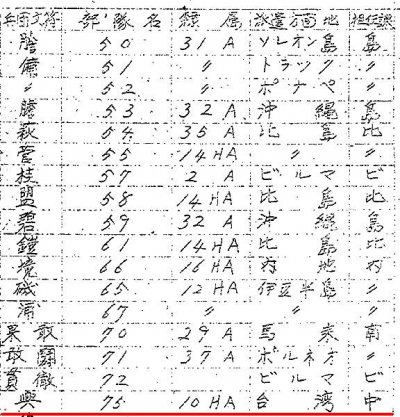 兵団文字符 部隊名 隷属 派遣方面地 担任課
謄 50 31 A ソレオン島 島
備 51 〃 トラック 〃
〃 52 〃 ポナペ 〃
騰 53 32 A 沖縄 島
萩 54 35 A 比島 比
菅 55 14 HA 〃 〃
枝 57 2 A ビルマ ビ
盟 58 14 HA 比島 比
碧 59 32 A 沖縄 島
鎧 61 14 HA 比島 比
境 66 16 HA 内地 内
磯 65 12 HA 伊豆半島 〃
浦 67 〃 〃 〃
果敢 70 29 A 馬来 南
敢闘 71 37 A ボルネオ 〃
貫徹 72 ビルマ ビ
興 75 10 HA 台湾 中